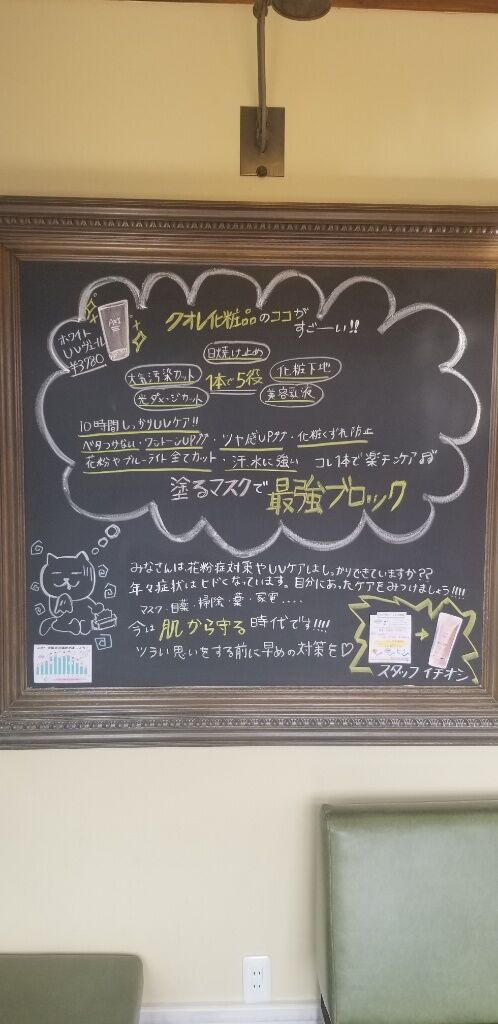 クオレ化粧品のココが
すごーい!!
ホワイト
UVヴェール
¥3780
日焼け止め
大気汚染カット
1本で5役
化粧下地
光ダメージカット
美容乳液
10時間しっかりUVケア!!
ベタつかない・ワントーンUP・ツヤ感UP・化粧くずれ防止
花粉やブルーライト全てカット・汗、水に強い コレ1本で楽チンケア
塗るマスクで最強ブロック
みなさんは、花粉症対策やUVケアはしっかりできていますか??
年々症状はヒドくなっています。自分にあったケアをみつけましょう!!!!
マスク・目薬・掃除・薬・家電....
今は肌から守る時代です!!!!
ツラい思いをする前に早めの対策を♡
スタッフイチオシ